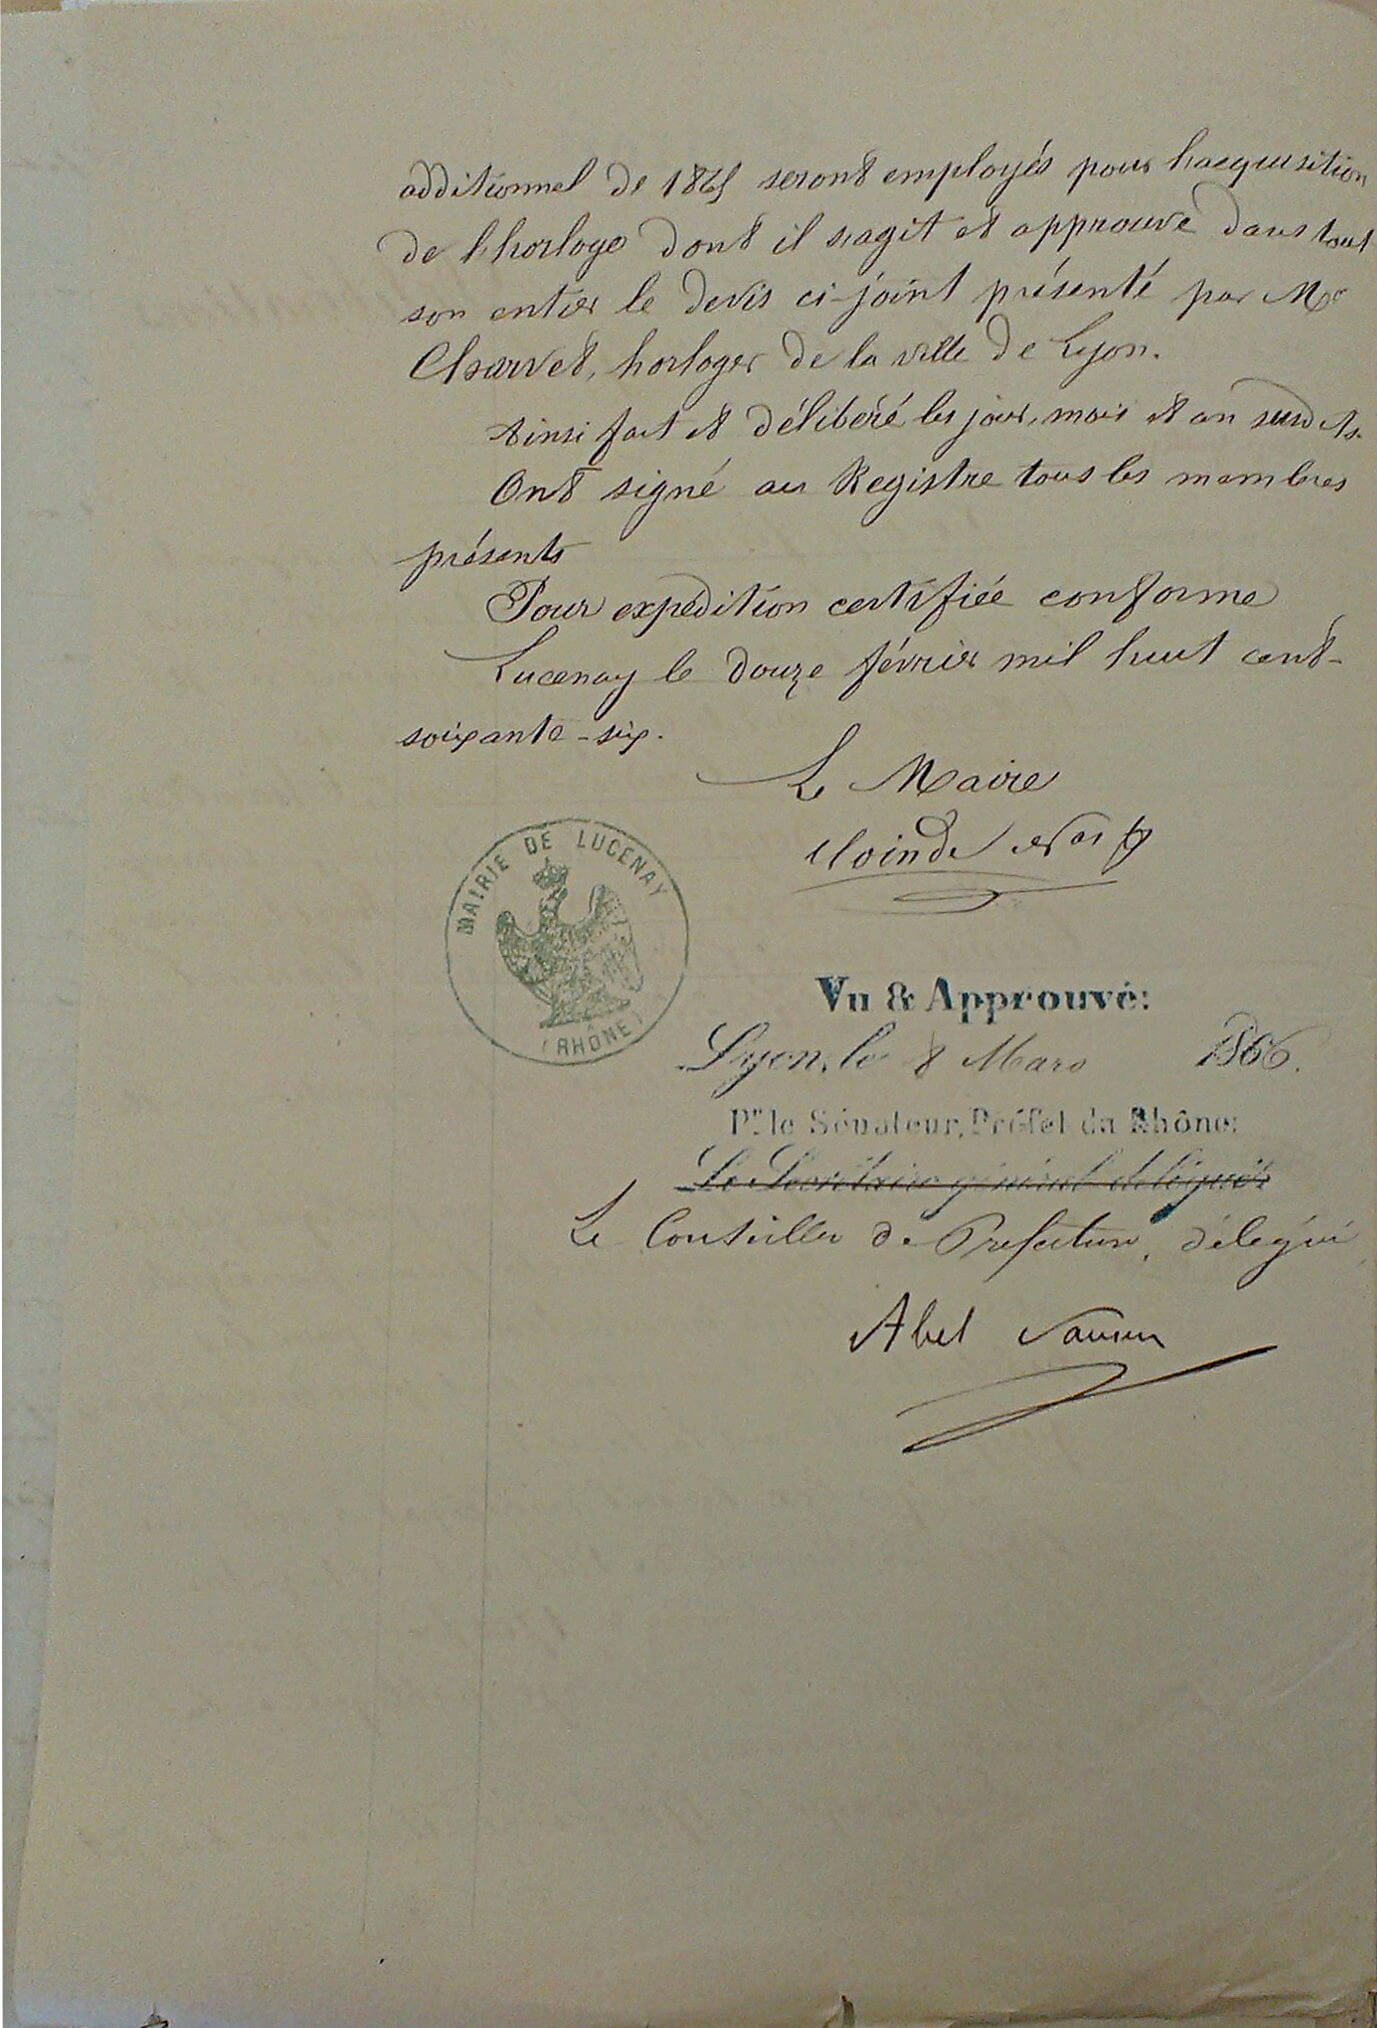 additionnel de 1865 seront employés pour l'acquisition
de l'horloge dont il s'agit et approuve dans tout
son entier le devis ci-joint présenté par Mr
Charvet, horloger de la ville de Lyon.
Ainsi fait et délibéré les jour, mois et an susdits.
Ont signé au Registre tous les membres
présents
Pour expédition certifiée conforme
Lucenay le douze février mil huit cent-
soixante-six.
Le Maire
MAIRIE DE LUCENAY
(RHÔNE)
Vu & Approuvé:
Lyon, le 8 Mars 1866.
Pr. le Sénateur, Préfet du Rhône:
Le Secrétaire général délégué
Le Conseiller de Préfecture, délégué
Abel